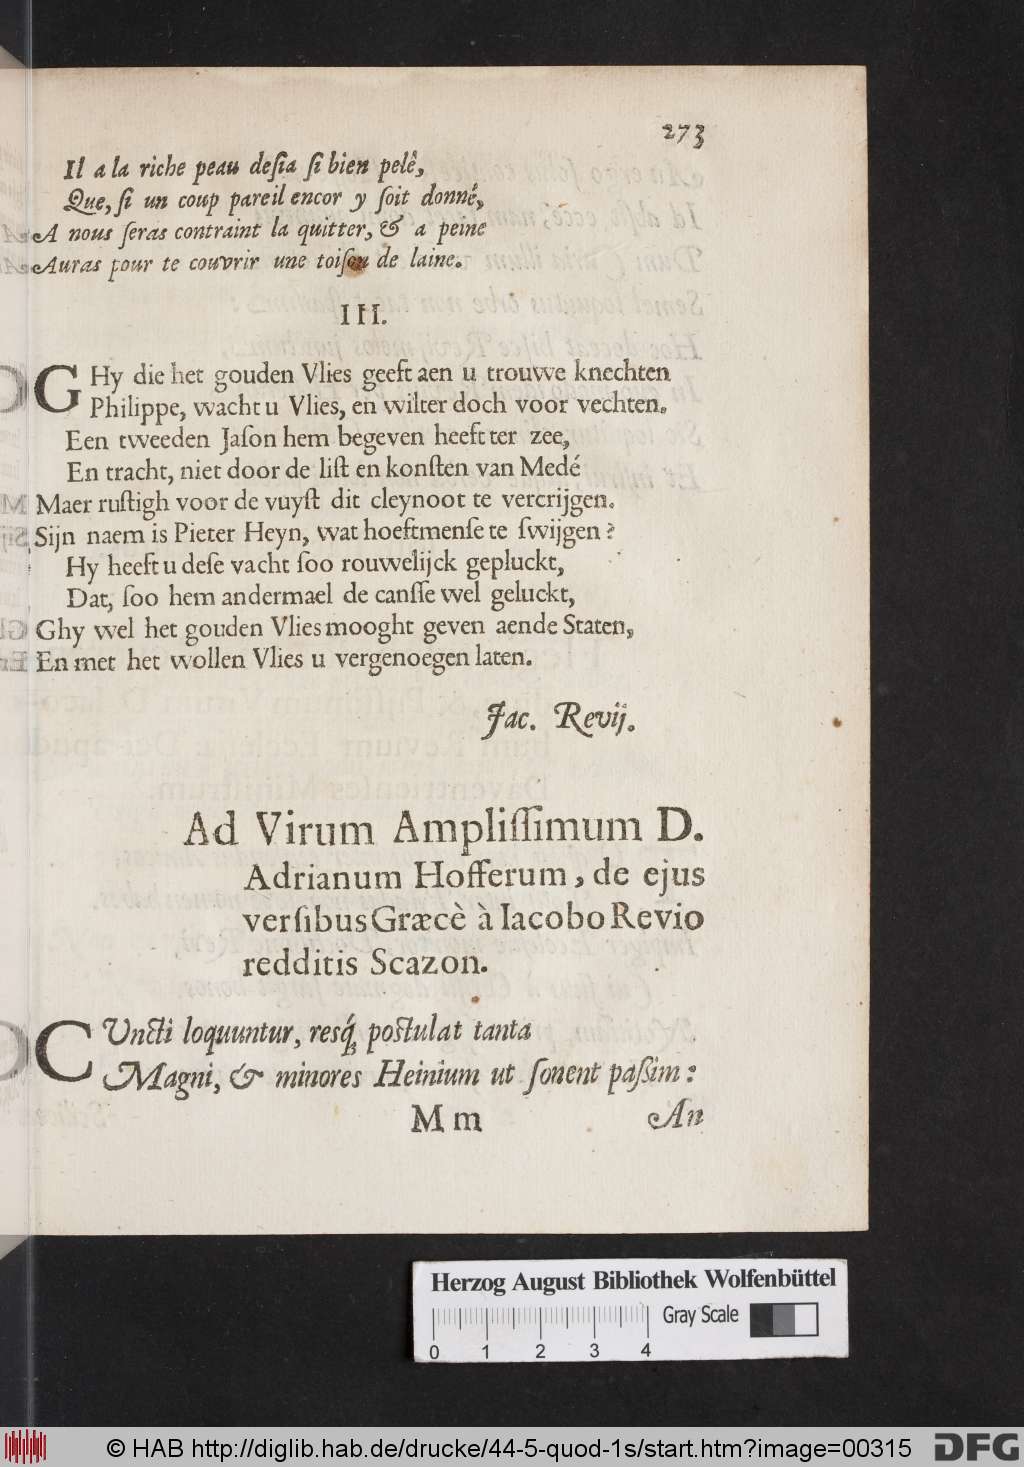 273
Il a la riche peau deſia ſi bien pelê,
Que, ſi un coup pareil encor y ſoit donné,
A nous ſeras contraint la quitter, & a peine
Auras pour te couvrir une toiſon de laine.
III.
GHy die het gouden Vlies geeft aen u trouwe knechten
Philippe, wacht u Vlies, en wilter doch voor vechten.
Een tweeden Jaſon hem begeven heeft ter zee,
En tracht, niet door de liſt en konſten van Medé
Maer ruſtigh voor de vuyſt dit cleynoot te vercrijgen.
Sijn naem is Pieter Heyn, wat hoeftmenſe te ſwijgen?
Hy heeft u deſe vacht ſoo rouwelijck gepluckt,
Dat, ſoo hem andermael de canſſe wel geluckt,
Ghy wel het gouden Vlies mooght geven aende Staten,
En met het wollen Vlies u vergenoegen laten.
Jac. Revij.
Ad Virum Ampliſſimum D.
Adrianum Hofferum, de ejus
verſibus Græcè à Iacobo Revio
redditis Scazon.
CUncti loquuntur, resq́ poſtulat tanta
Magni, & minores Heinium ut ſonent paßim:
M m
An
Herzog August Bibliothek Wolfenbüttel
Gray Scale
0 1 2 3 4
© HAB http://diglib.hab.de/drucke/44-5-quod-1s/start.htm?image=00315
DFG